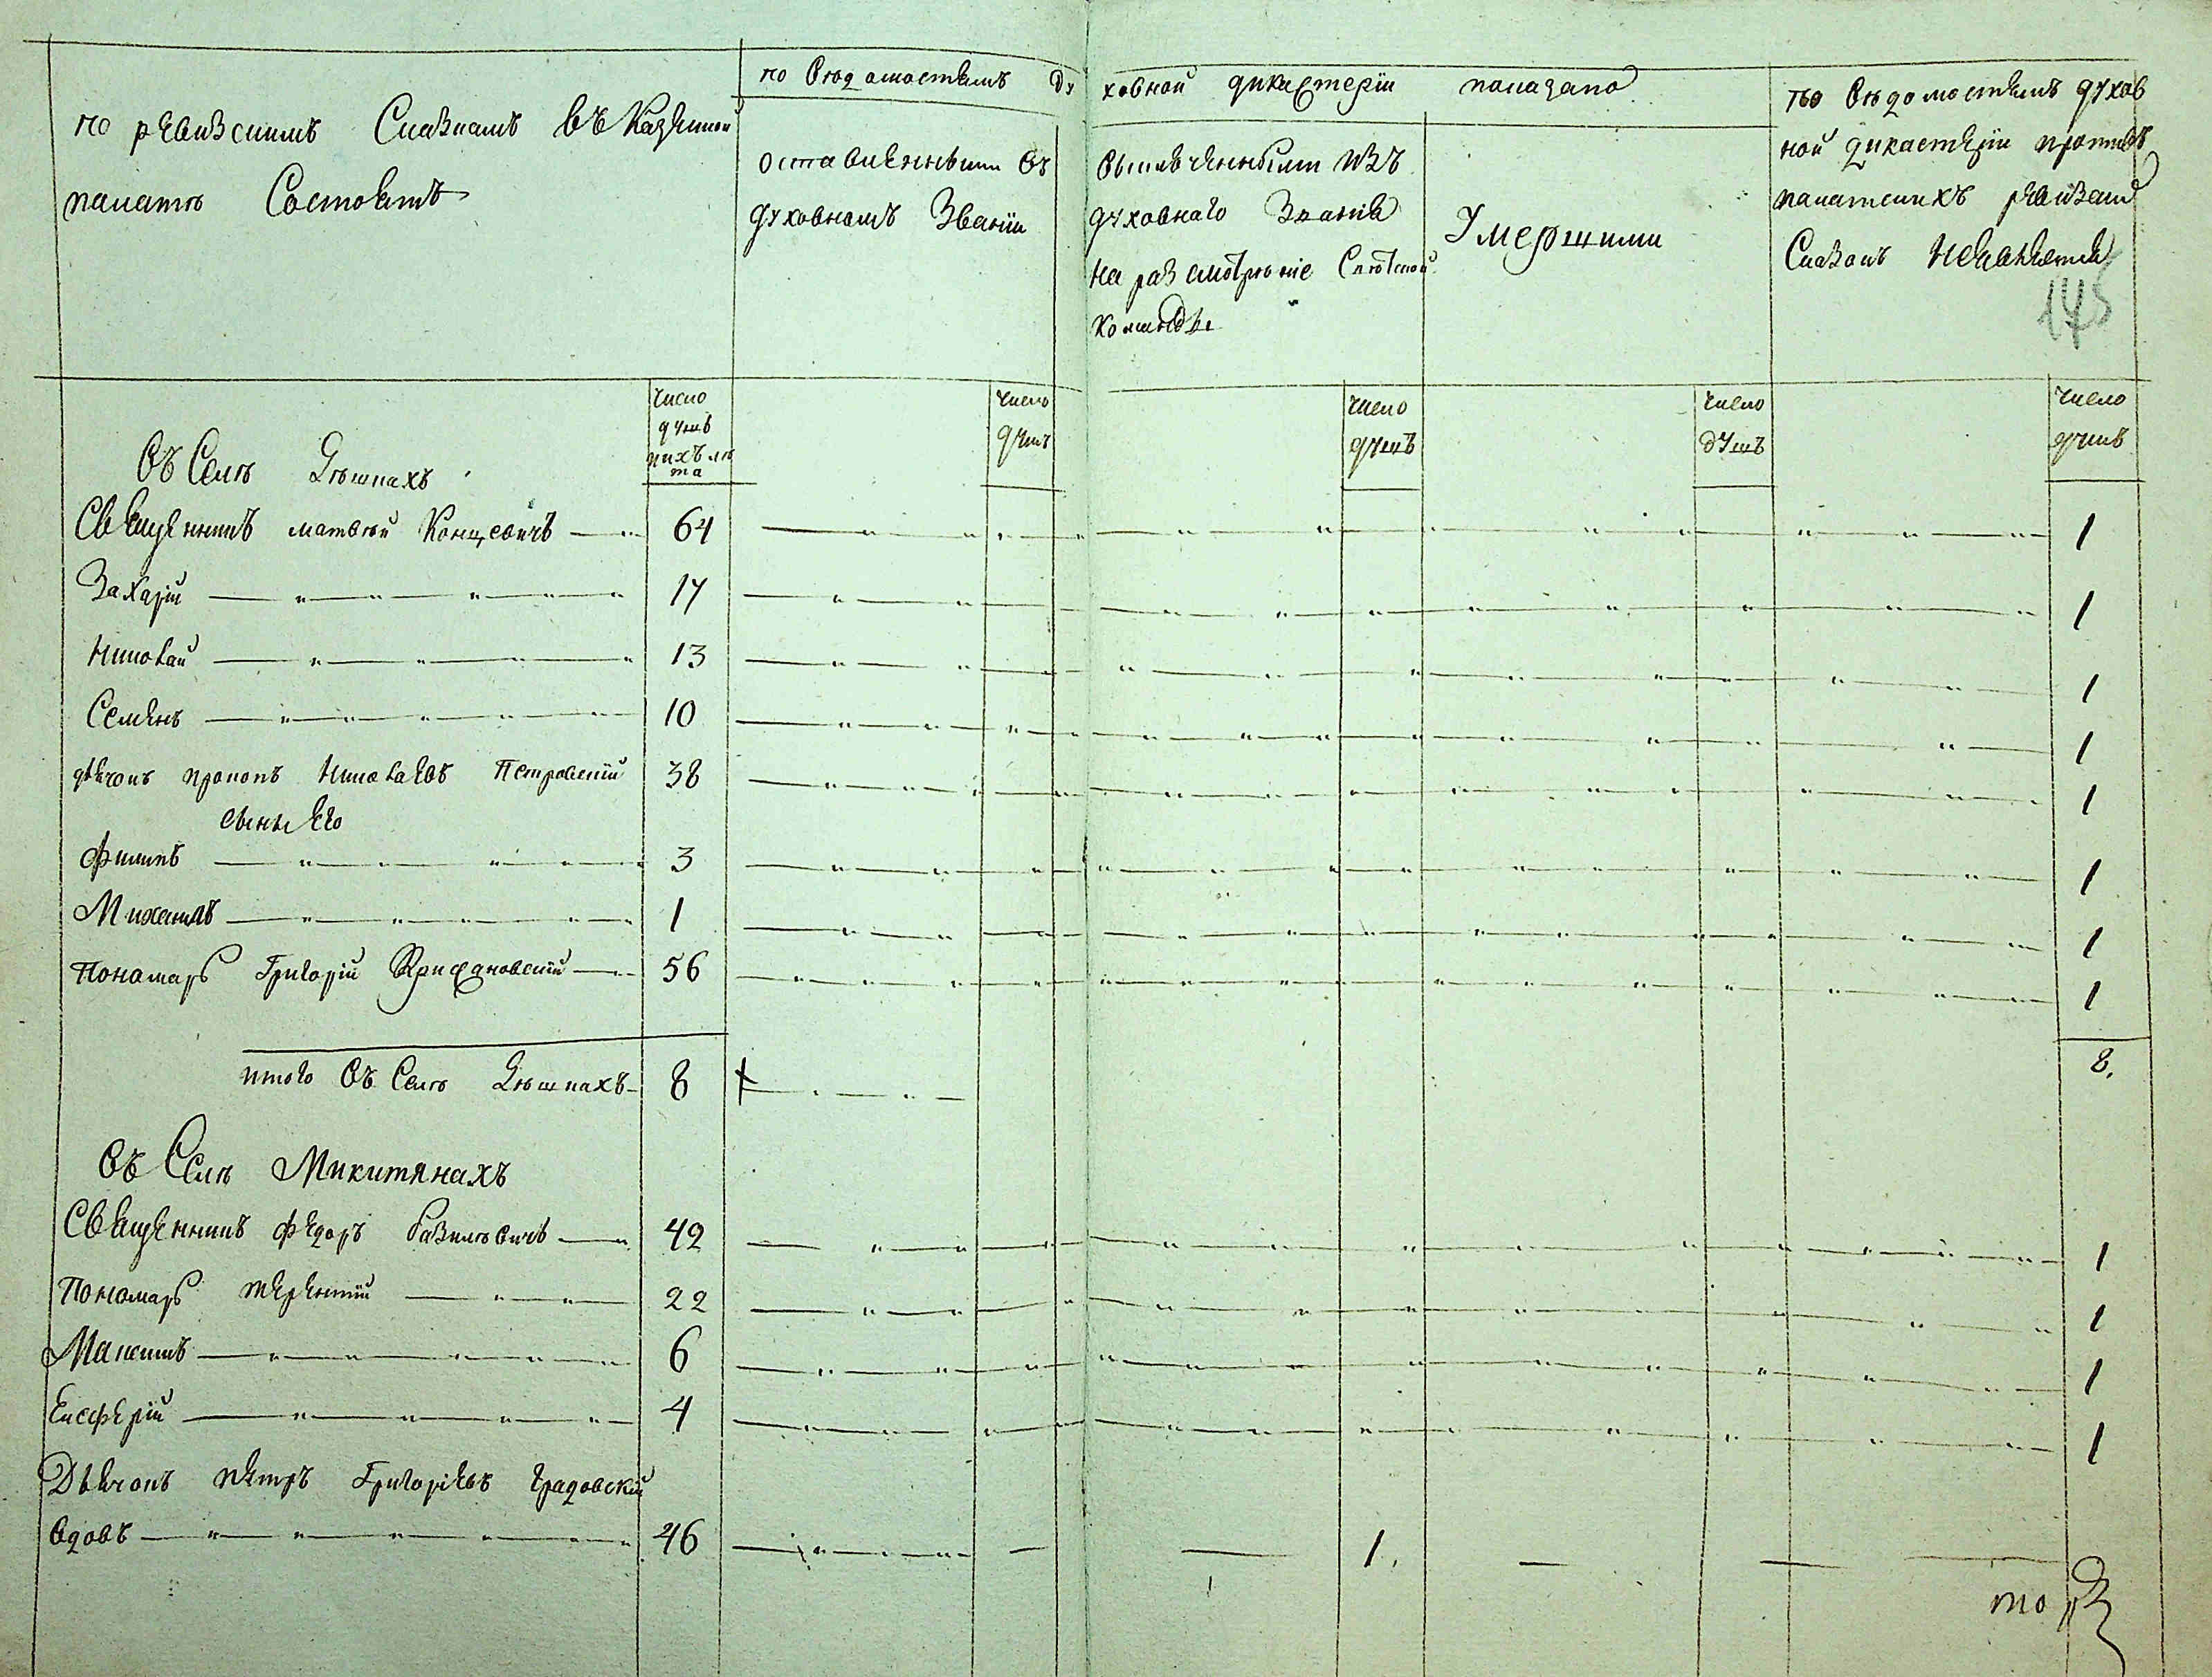 по ревизскимъ Сказкамъ въ Казенной
палатѣ Состоитъ
по вѣдомостямъ Ду
ховной дикастеріи показано
оставленными въ
духовномъ Званіи
выключенными изъ
духовнаго Званія
на разсмотрѣніе Свѣтской
команды
Умершими
по вѣдомостямъ духов
ной дикастеріи противъ
палатскихъ ревизкихъ
Сказокъ неявляется
145
число
душъ
ихъ лѣ
та
число
душъ
число
душъ
число
душъ
число
душъ
Въ Селѣ
Священникъ матвей Концевичъ 64 1
Захарій 17 1
Николай 13 1
Семенъ 10 1
дьячокъ прокопъ Николаевъ Петровскій 38 1
сыны Его
филипъ 3 1
Михаилъ 1 1
Пономарь Григорій 56 1
итого Въ Селѣ 8 8.
Въ Селѣ Микитянахъ
Священникъ федоръ Базилѣвичъ 42 1
Пономарь терентій 22 1
Максимъ 6 1
Елефѣрій 4 1
Дьячокъ петръ Григоріевъ Градовскій
вдовъ 46 1.